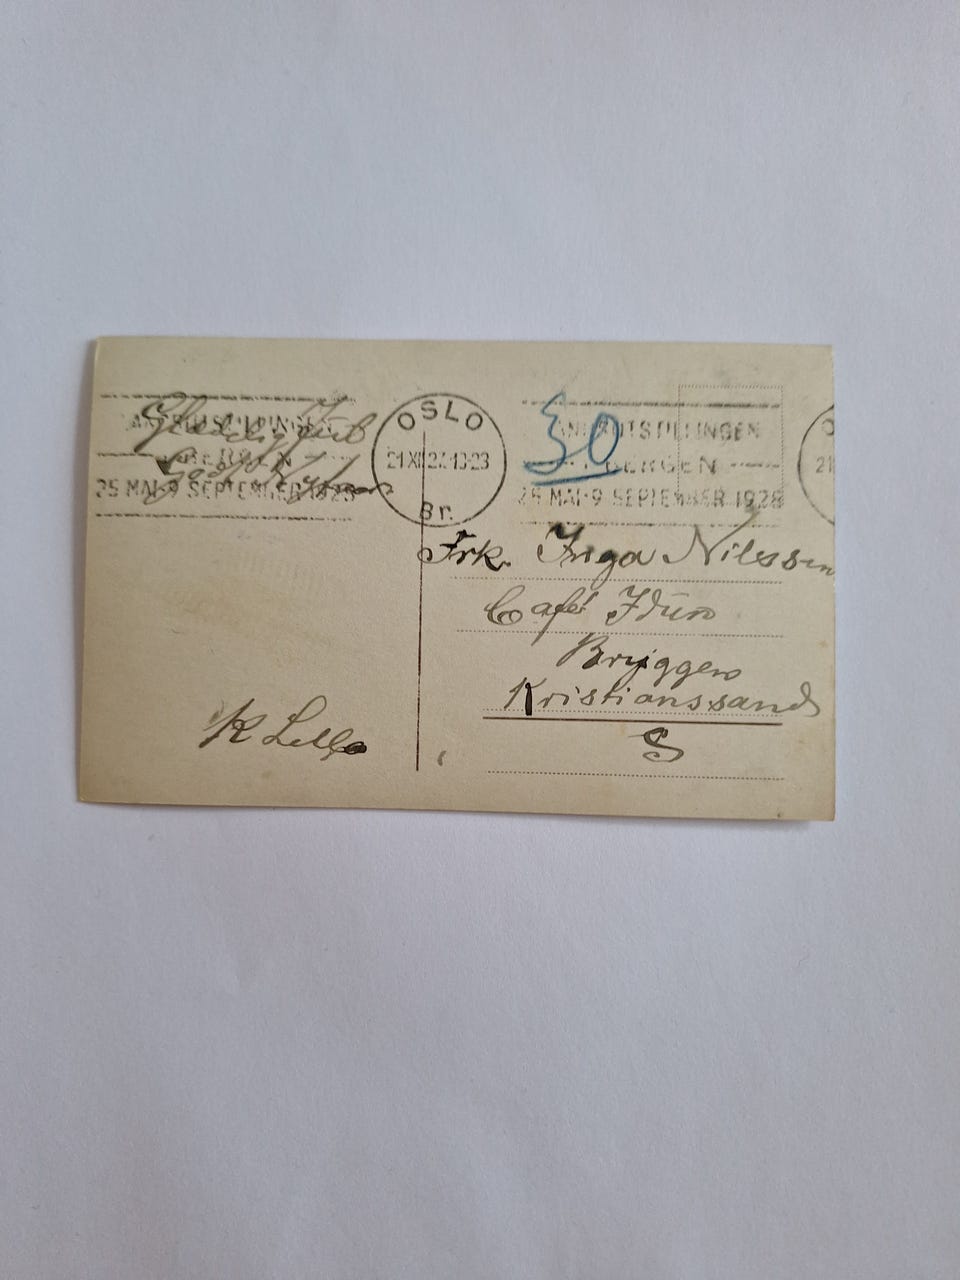 Glædelig Jul
Godt Nytaar
K Lella
LANDSUTSTILLINGEN
BERGEN
25 MAI-9 SEPTEMBER 1928
OSLO
21 XII 27.-13-23
Br.
30
LANDSUTSTILLINGEN
BERGEN
25 MAI-9 SEPTEMBER 1928
O
21
Frk. Inga Nilssen
Café Idun
Bryggen
Kristianssand
S